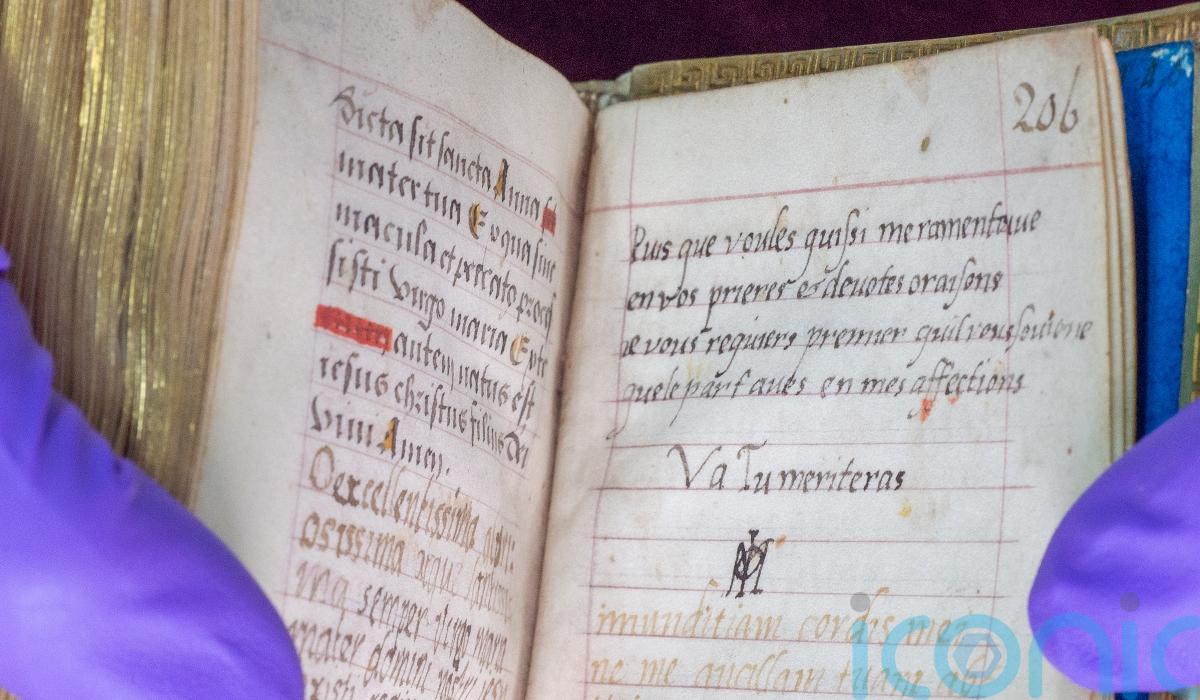 Dicta sit sancta Anna
mater tua Ex qua sine
macula et peccato proces
sisti virgo maria Ex te
autem natus est
iesus christus filius dei
vivi Amen.
O excellentissima
osissima
semper virgo maria
mater domini nostri iesu
206
Puis que voules quissi me ramentoive
en vos prieres & devotes oraisons
Je vous requiers premier quil vous souviene
quele part aves en mes affections
Va Tu meriteras
imunditiam cordis mei
ne me ancillam tuam ab
iconic